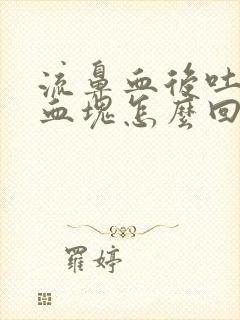 流鼻血後吐
血塊怎麼回
羅婷